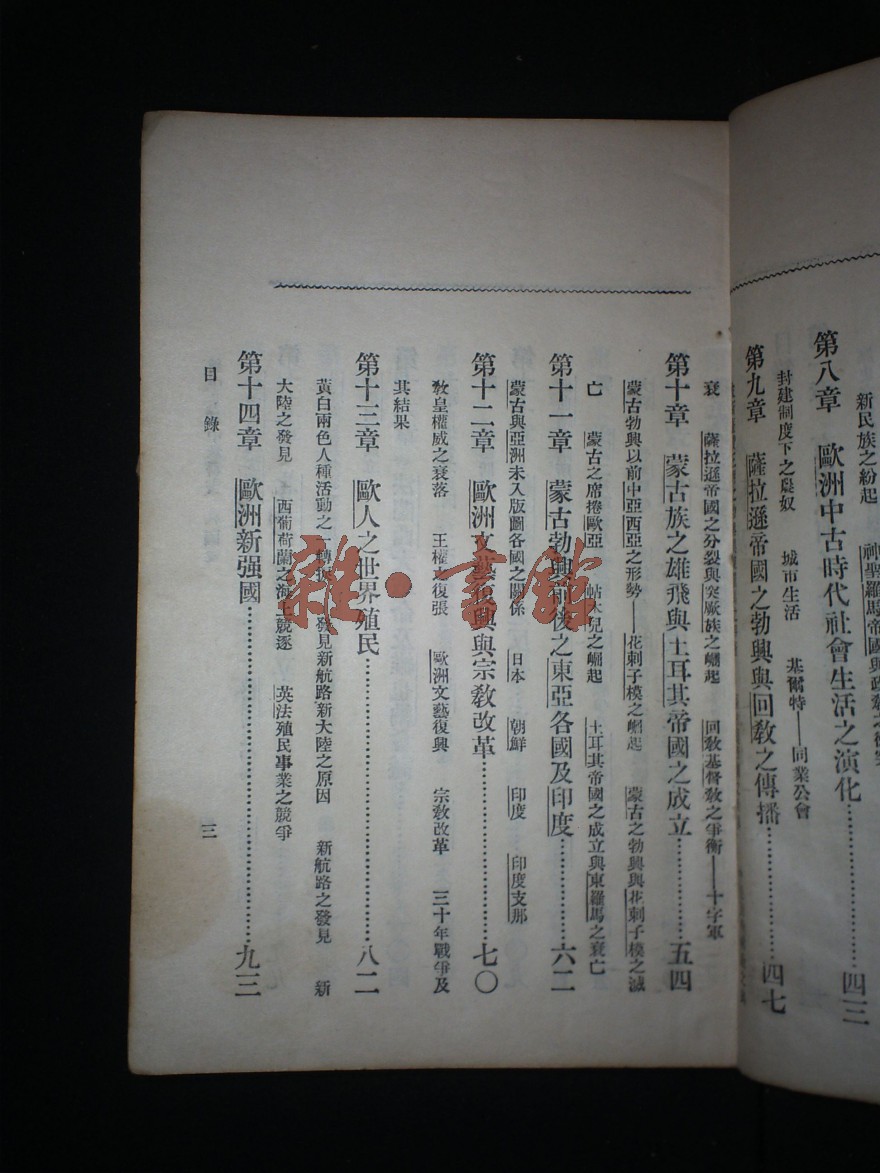 新民族之紛起
第八章　歐洲中古時代社會生活之演化……四三
封建制度下之農奴　城市生活　基爾特——同業公會
第九章　薩拉遜帝國之勃興與回教之傳播……四七
衰　薩拉遜帝國之分裂與突厥族之崛起　回教基督教之爭衡——十字軍
第十章　蒙古族之雄飛與土耳其帝國之成立……五四
蒙古勃興以前中亞西亞之形勢——花剌子模之崛起　蒙古之勃興與花剌子模之滅
亡　蒙古之席捲歐亞　帖木兒之崛起　土耳其帝國之成立與東羅馬之衰亡
第十一章　蒙古勃興前後之東亞各國及印度……六二
蒙古與亞洲未入版圖各國之關係　日本　朝鮮　印度　印度支那
第十二章　歐洲文藝復興與宗教改革……七〇
教皇權威之衰落　王權之復張　歐洲文藝復興　宗教改革　三十年戰爭及
其結果
第十三章　歐人之世界殖民……八二
黃白兩色人種活動之一轉捩　發見新航路新大陸之原因　新航路之發見　新
大陸之發見　西葡荷蘭之海上競逐　英法殖民事業之競爭
第十四章　歐洲新强國……九三
目錄
三
雜·書館